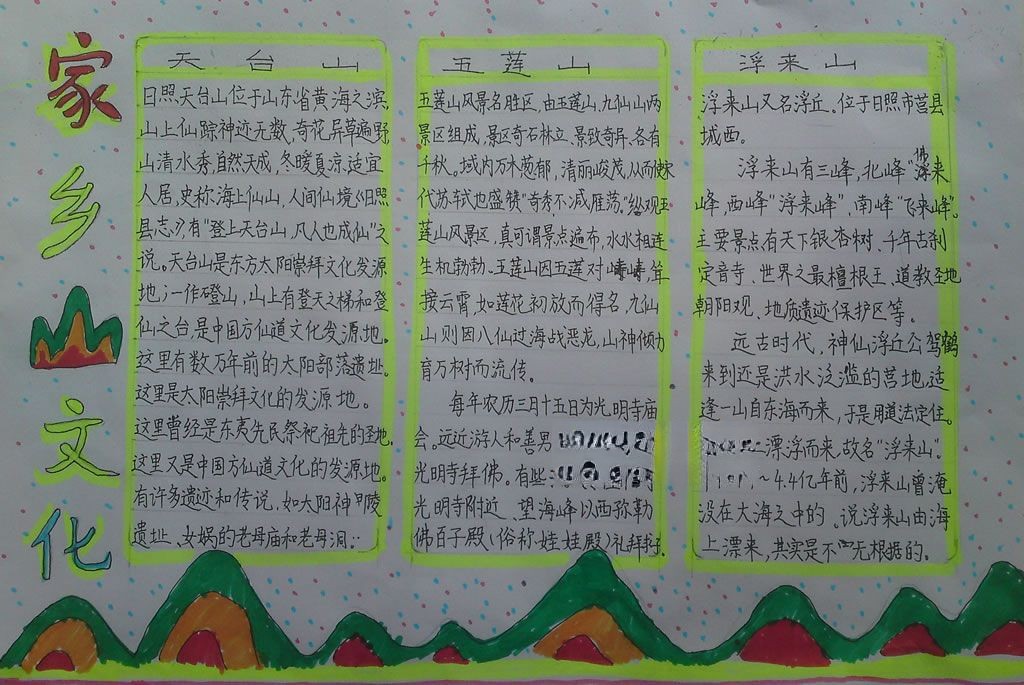 家乡文化
天台山
日照天台山位于山东省黄海之滨,
山上仙踪神迹无数,奇花异草遍野
山清水秀,自然天成,冬暖夏凉,适宜
人居,史称海上仙山,人间仙境《日照
县志》有"登上天台山,凡人也成仙"之
说。天台山是东方太阳崇拜文化发源
地;一作磴山,山上有登天之梯和登
仙之台是中国方仙道文化发源地。
这里有数万年前的太阳部落遗址。
这里是太阳崇拜文化的发源地。
这里曾经是东夷先民祭祀祖先的圣地。
这里又是中国方仙道文化的发源地。
有许多遗迹和传说,如太阳神陵
遗址、女娲的老母庙和老母洞:
五莲山
五莲山风景名胜区,由五莲山,九仙山两
景区组成,景区奇石林立、景致奇异、各有
千秋。域内万木葱郁,清丽峻茂,从而使宋
代苏轼也盛赞"奇秀不减雁荡。"纵观五
莲山风景区,真可谓景点遍布,水水相连
生机勃勃、五莲山因五莲对峙,耸
接云霄,如莲花初放而得名,九仙
山则因八仙过海战恶龙,山神倾力
育万树而流传。
每年农历三月十五日为光明寺庙
会。远近游人和善男
光明寺拜佛。有些
光明寺附近望海峰以西弥勒
佛百子殿(俗称娃娃殿)礼拜
浮来山
浮来山又名浮丘。位于日照市莒县
城西。
浮来山有三峰,北峰"佛来
峰,西峰"浮来峰"、南峰"飞来峰"。
主要景点有天下银杏树、千年古刹
定音寺、世界之最檀根王、道教圣地
朝阳观、地质遗迹保护区等。
远古时代,神仙浮丘公驾鹤
来到还是洪水泛滥的营地,适
逢一山自东海而来,于是用道法定住。
漂浮而来,故名"浮来山"。
~4.4亿年前,浮来山曾淹
没在大海之中的。说浮来山由海
上漂来,其实是不无根据的。